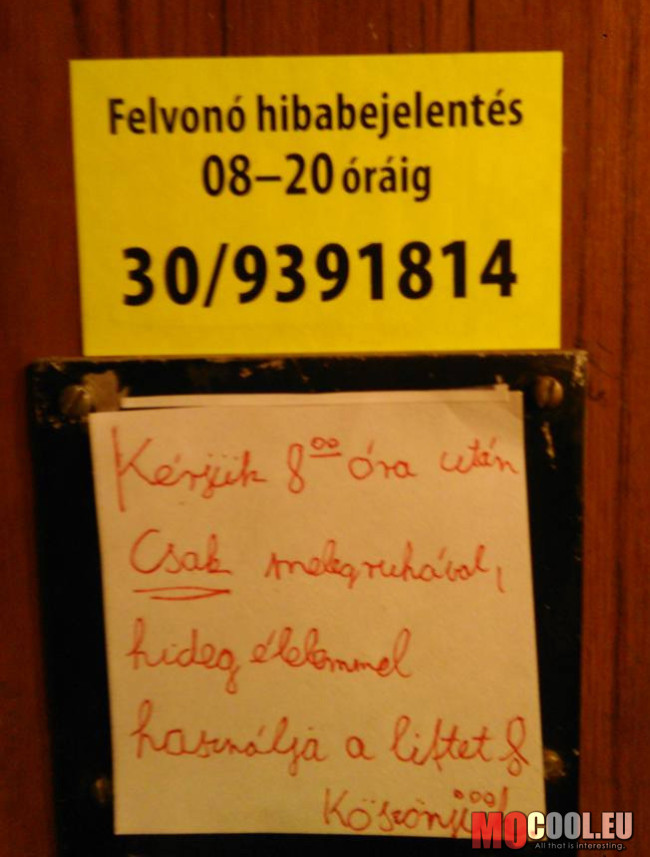 Felvonó hibabejelentés
08–20 óráig
30/9391814
Kérjük 8⁰⁰ óra után
Csak melegruhával,
hideg élelemmel
használja a liftet!
Köszönjük!
MOCOOL.EU
All that is interesting.